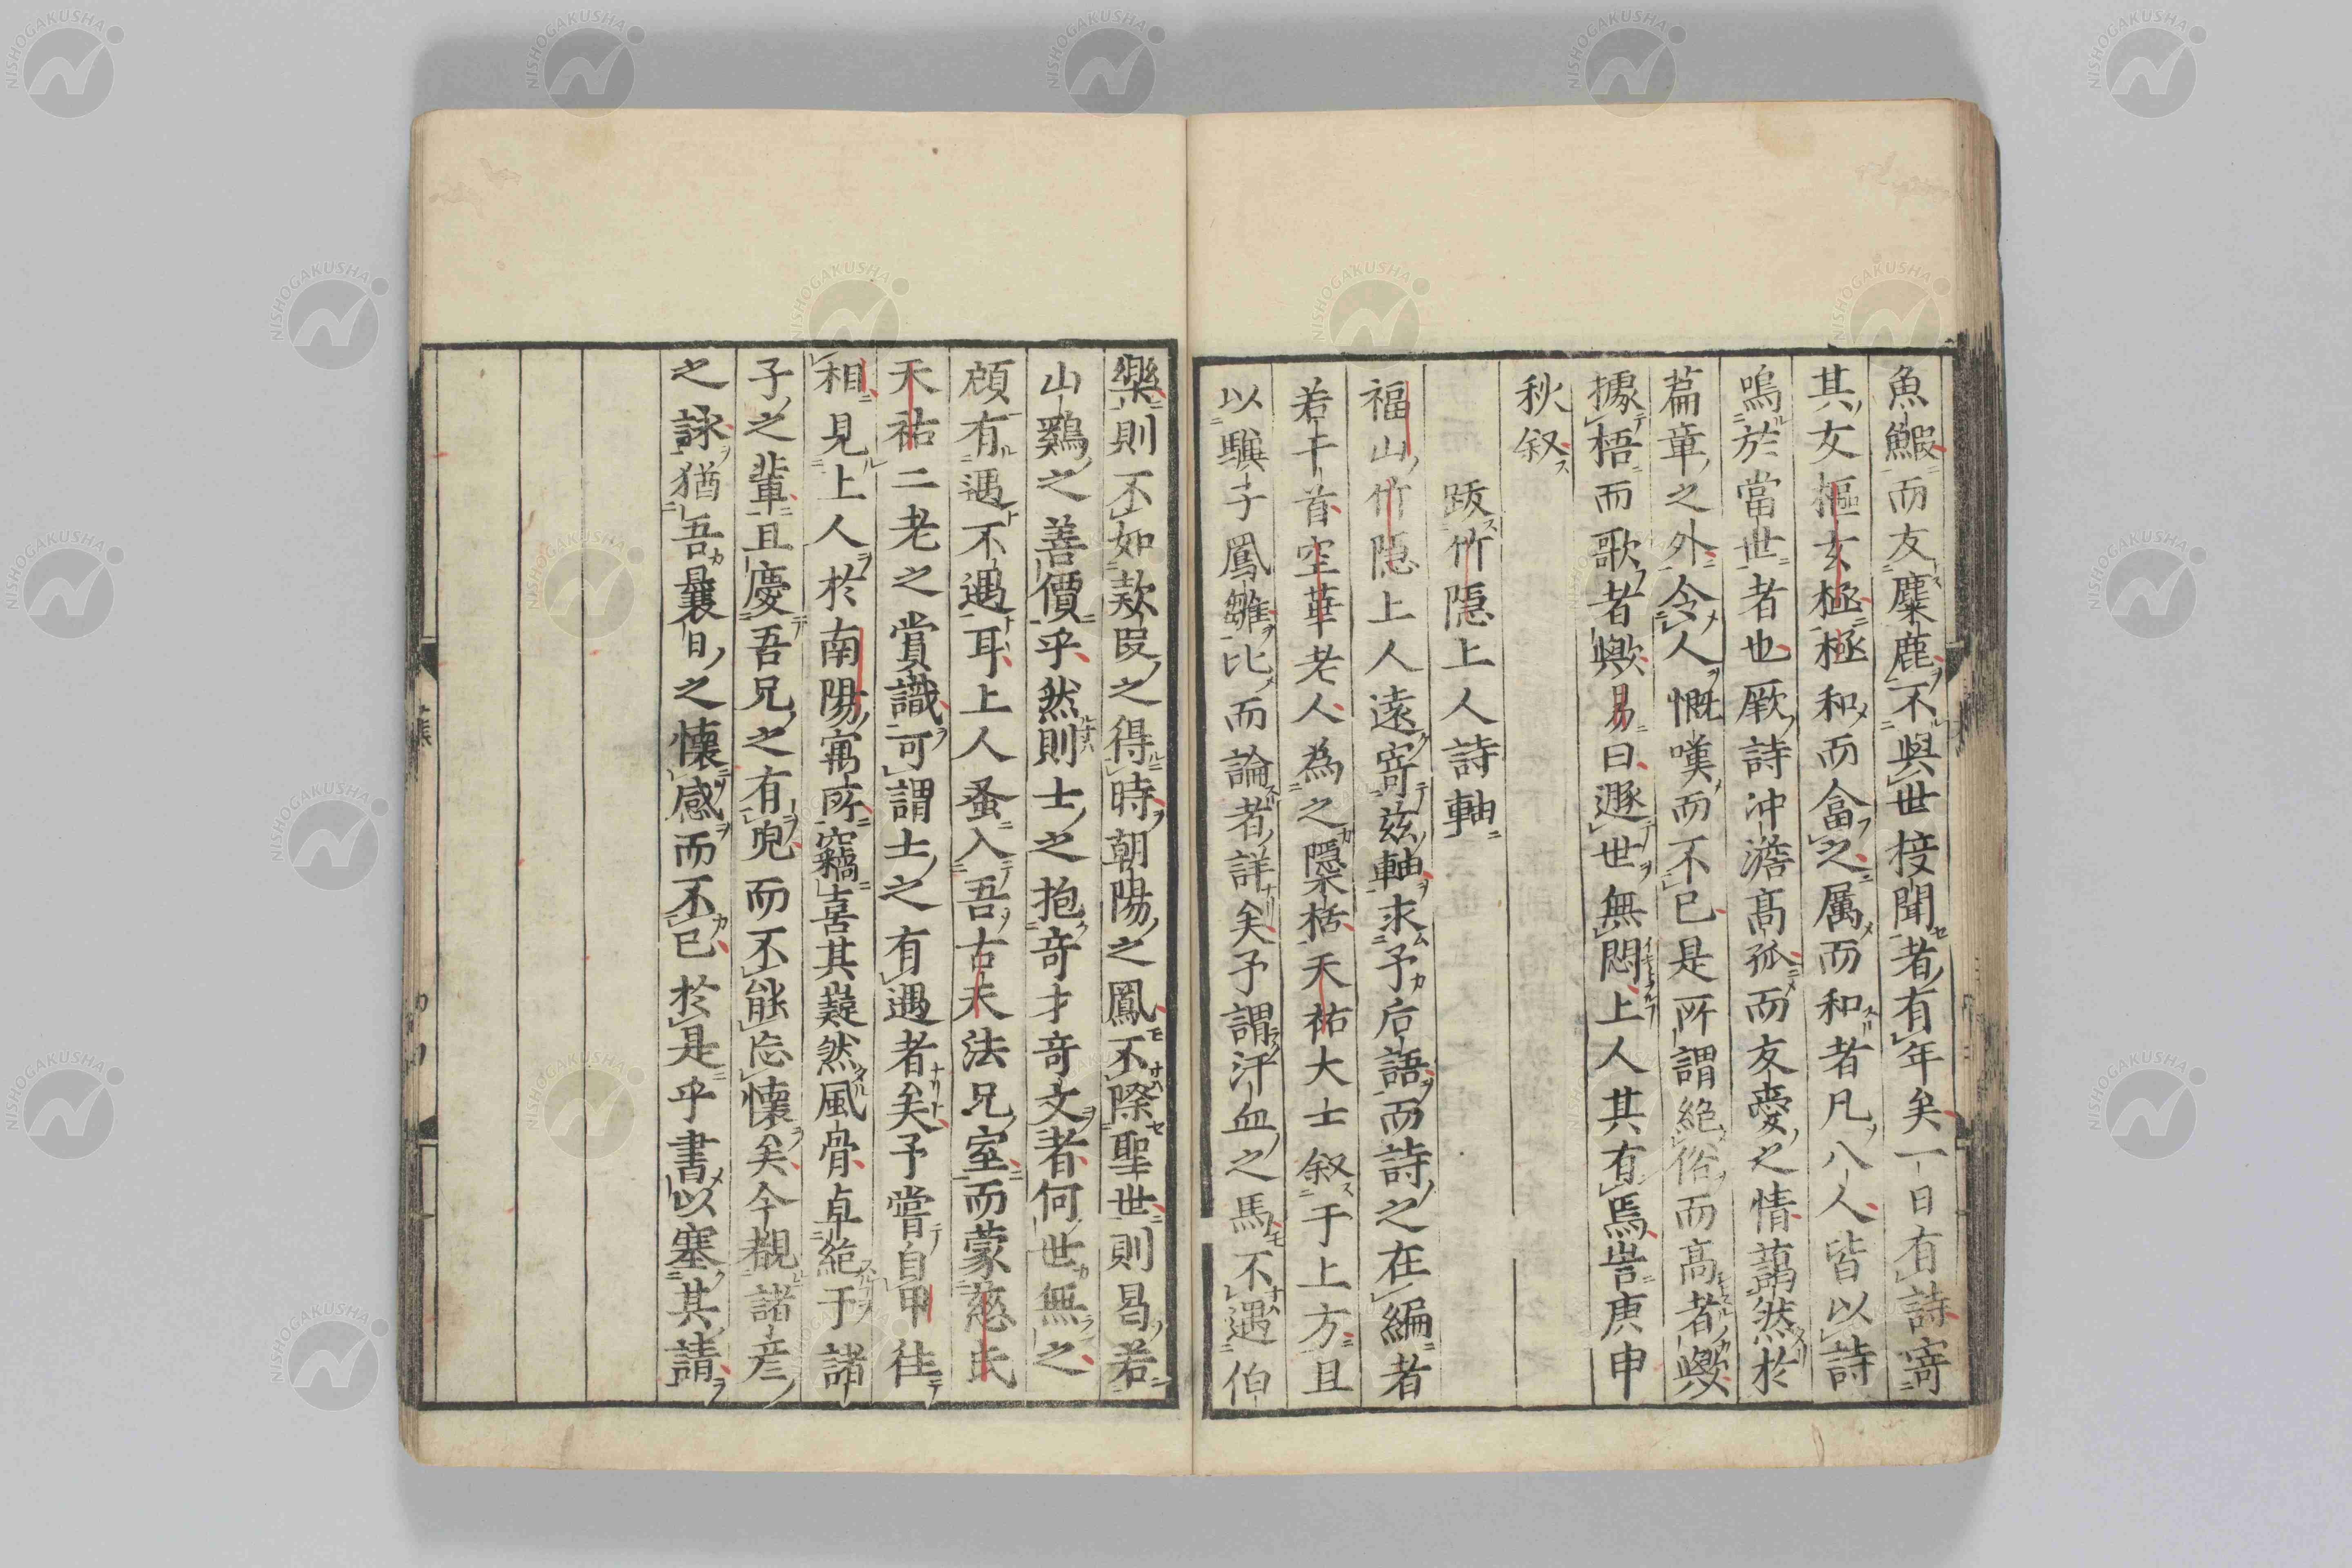 魚鰕而友麋鹿不與世接聞者有年矣一日有詩寄
其女樞玄極極和而畣之属而和者凡八人皆以詩
鳴於當世者也厥詩沖澹髙孤而友愛之情藹然於
篇章之外令人慨嘆而不已是所謂絶俗而髙者歟
據梧而歌者歟易曰遯世無悶上人其有焉旹庚申
秋叙
跋竹隠上人詩軸
福山竹隠上人遠寄兹軸求予后語而詩之在編者
若干首空華老人為之檃栝天祐大士叙于上方且
以驥子鳳雛比而論者詳矣予謂汗血之馬不遇伯
樂則不如欵段之得時朝陽之鳳不際聖世則曷若
山鷄之善價乎然則士之抱竒才竒文者何世無之
頋有遇不遇耳上人蚤入吾古天法兄室而蒙慈氏
天祐二老之賞識可謂士之有遇者矣予嘗自甲徃
相見上人於南陽寓所竊喜其嶷然風骨卓絶于諸
子之輩且慶吾兄之有兒而不能忘懷矣今覩諸彦
之詠猶吾曩日之懷感而不已於是乎書以塞其請